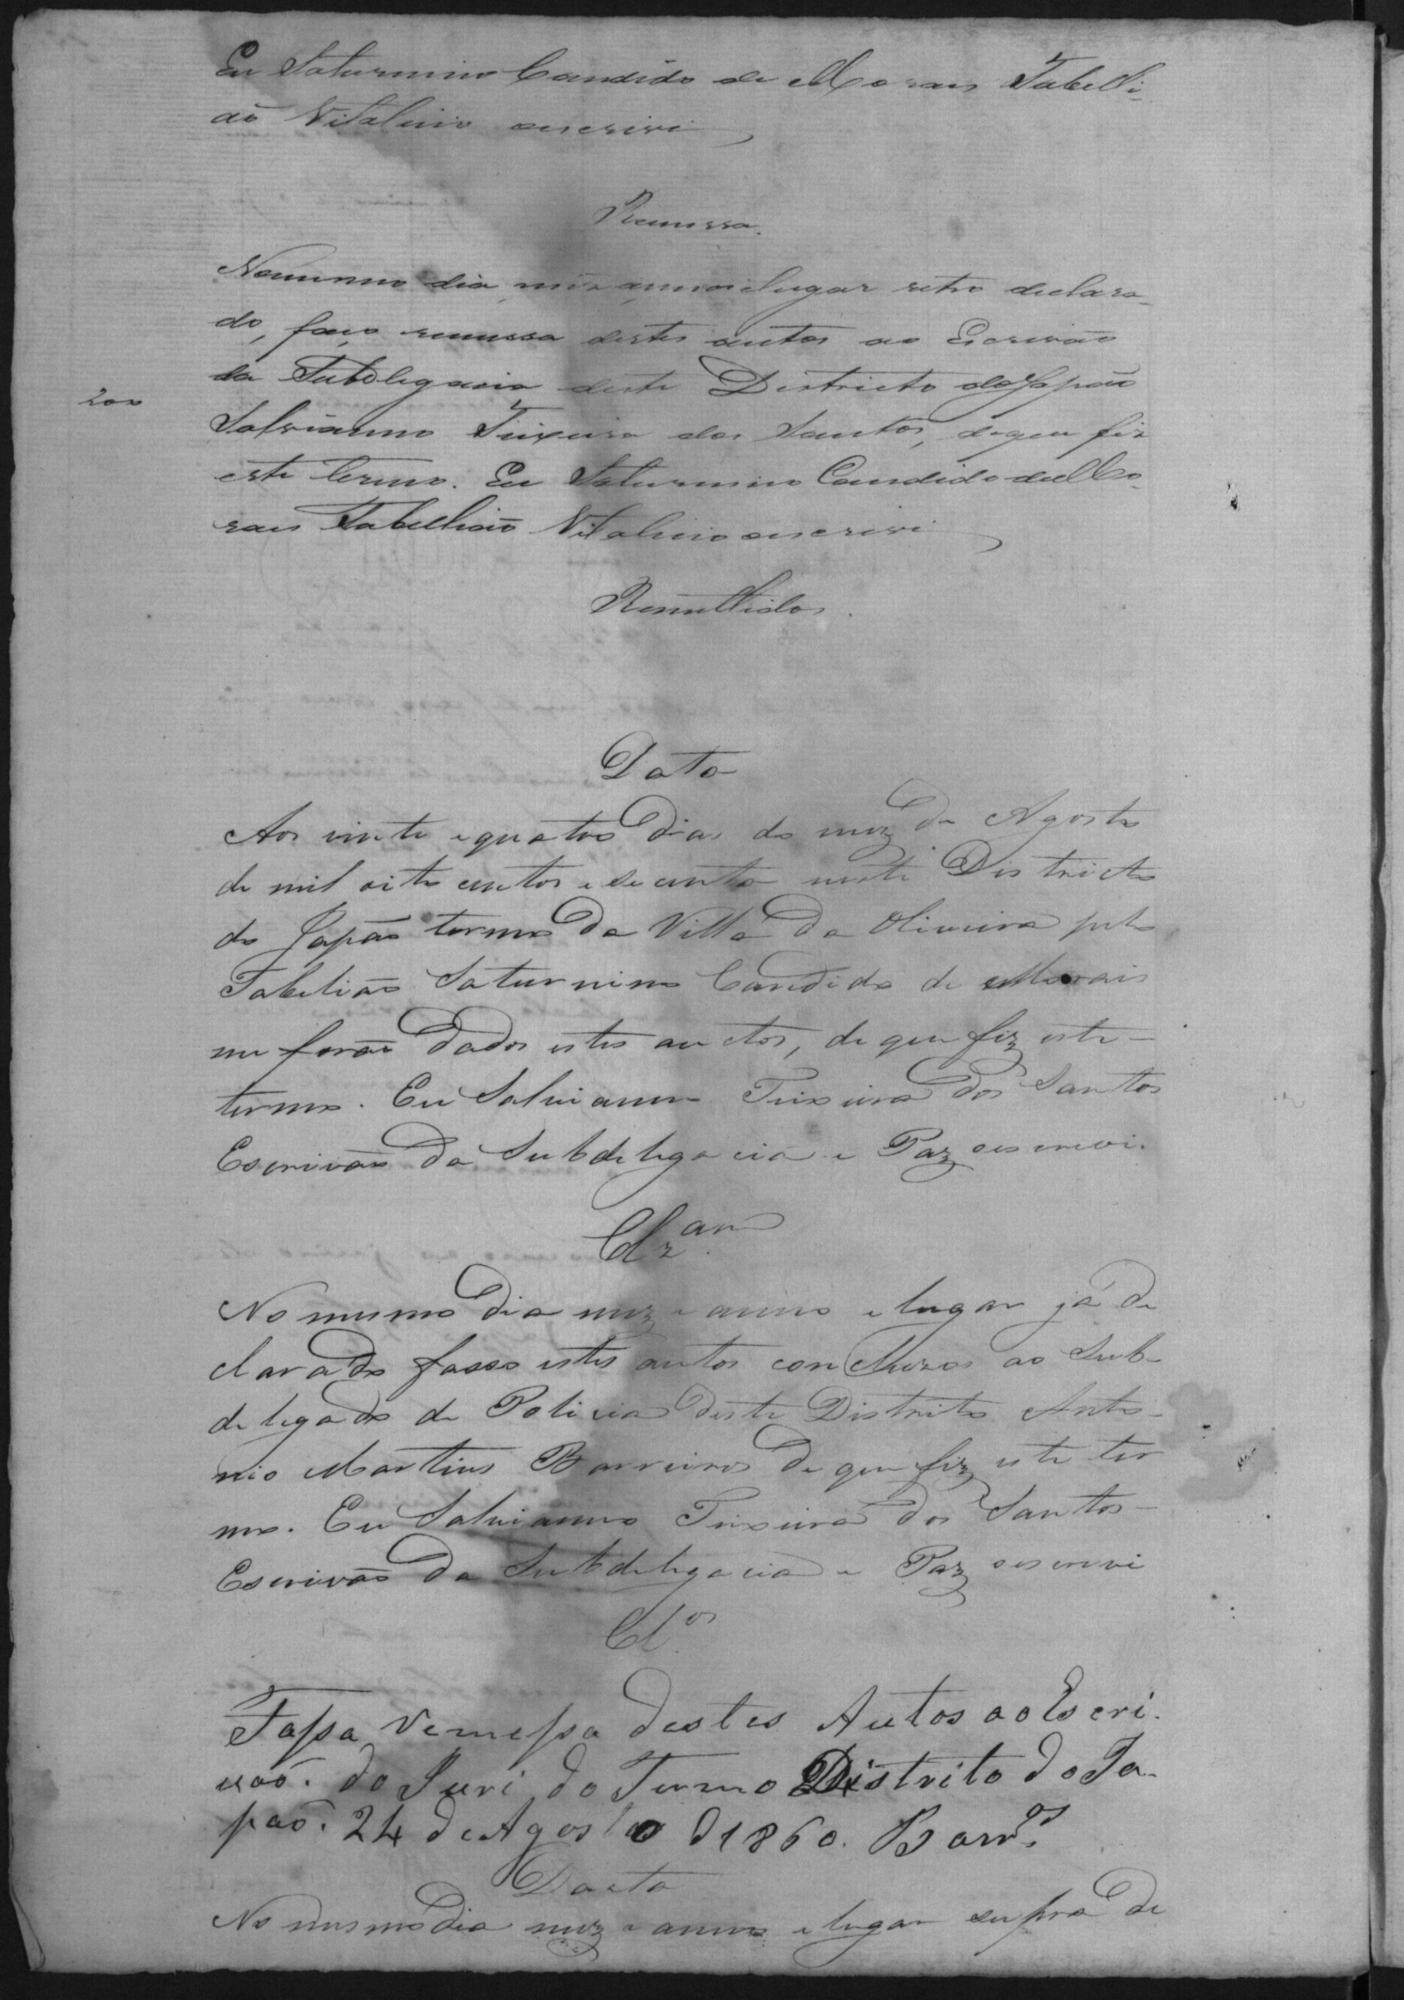 Eu Saturnino Candido de Moraes Tabelli-
ão Vitalicio oescrivi
Remessa.
Nomesmo dia mes annoelugar retro declara-
do, faço remessa destes autos ao Escrivão
da Subdlegacia deste Districto doJapão
200
Salvianno Teixeira dos Santos, doque fiz
este termo. Eu Saturnino Candido deMo-
raes Tabellião Vitalicio oescrivi
Remettidos.
Data
Aos vinte equatro dias do mez de Agosto
de mil oito centos e secenta neste Districto
do Japão termo da Villa da Oliveira pelo
Tabelião Saturnino Candido de Morais
me forão dados estes auctos, de que fiz este-
termo. Eu Salvianno Teixeira dos Santos
Escrivão da Subdelegacia e Paz oescrevi.
Clzam
No mesmo dia mez e anno elugar já de
clarado fasso estes autos concluzos ao Sub-
delegado de Policia deste Distrito Anto-
nio Martins Barreiros de que fiz este ter
mo. Eu Salvianno Teixeira dos Santos-
Escrivão da Subdelegacia e Paz oescrevi
Clos
Fassa remessa destes Autos aoEscri.
vaõ. do Juri do Termo Distrito do Ja-
paõ. 24 deAgosto d1860. Barros
Dacta
No mesmo dia mez e anno elugar supra de